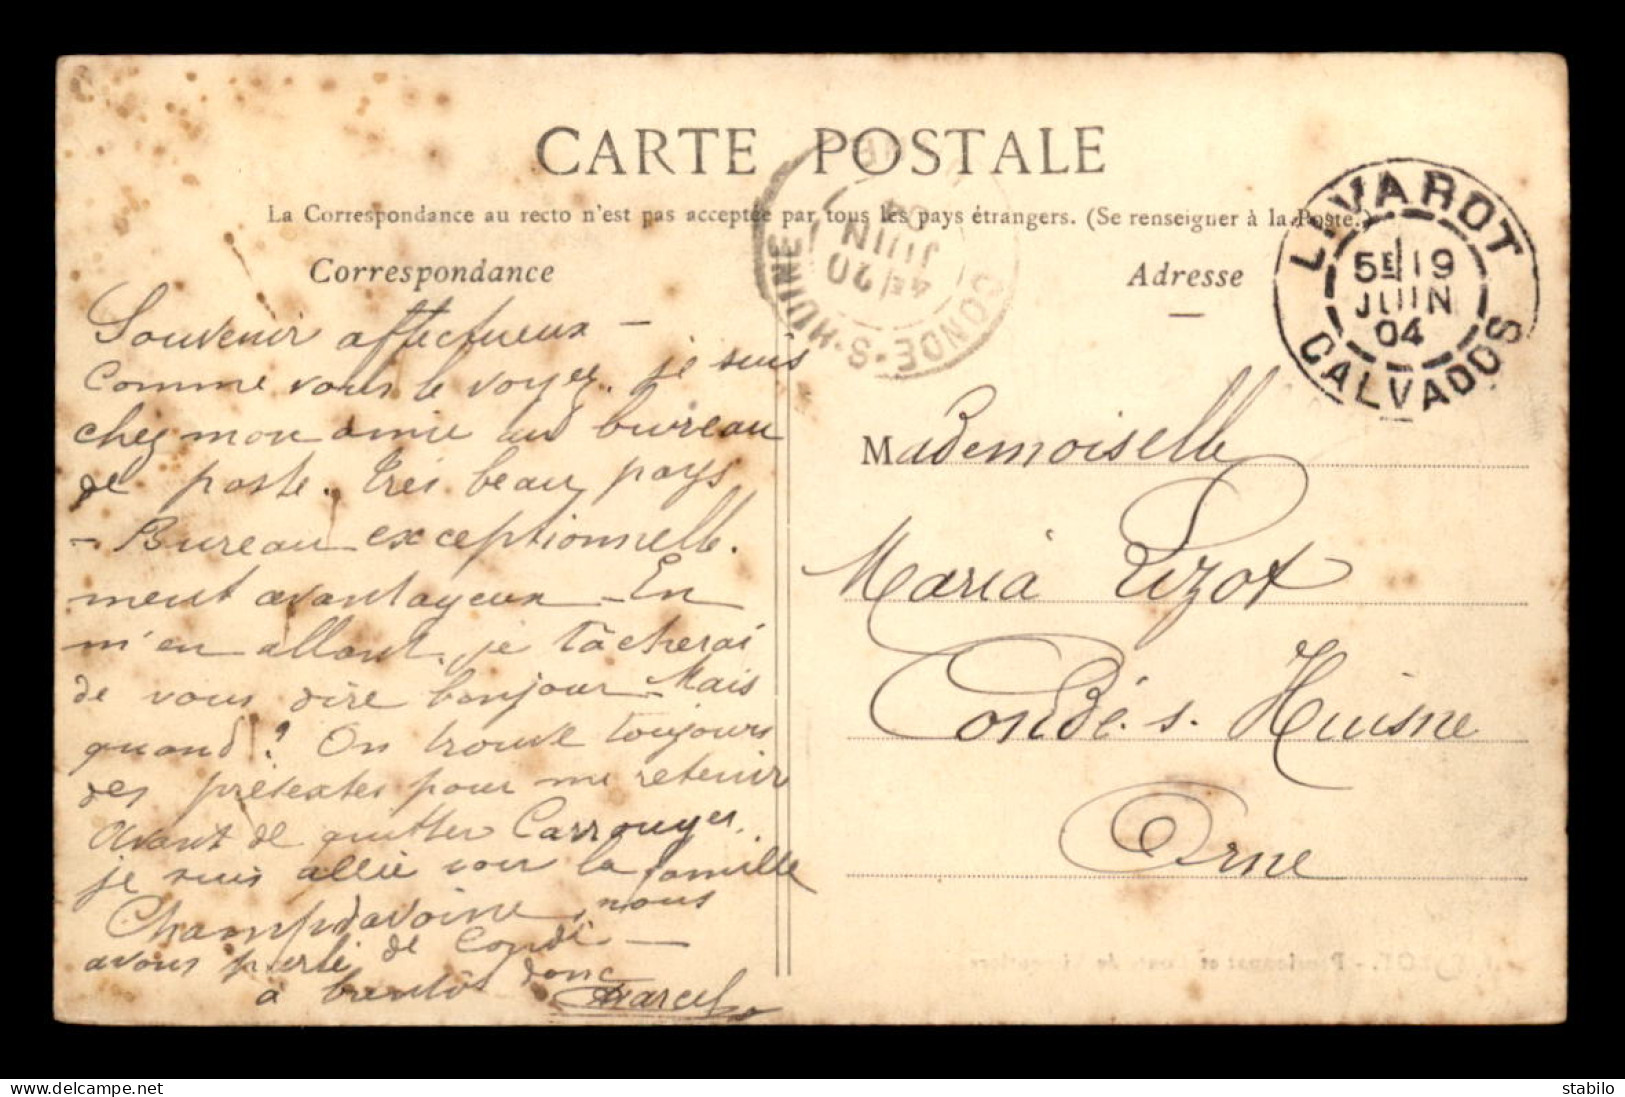 CARTE POSTALE
La Correspondance au recto n'est pas acceptée par tous les pays étrangers. (Se renseigner à la Poste.)
Correspondance
Souvenir affectueux —
Comme vous le voyez. je suis
chez mon amie au bureau
de poste. très beau pays
— Bureau exceptionnelle.
ment avantageux — En
m'en allant, je tâcherai
de vous dire bonjour — Mais
quand ? On trouve toujours
des prétextes pour me retenir
avant de quitter Carrouges.
je suis allée voir la famille
Champdavoine, nous
avons parlé de Condé —
à bientôt donc
Marcel
Adresse
Mademoiselle
Maria
Condé. s. Huisne
Orne
LIVAROT
5E 19
JUIN
04
CALVADOS
CONDE-S-HUINE
4E 20
JUIN
04
stabilo
www.delcampe.net